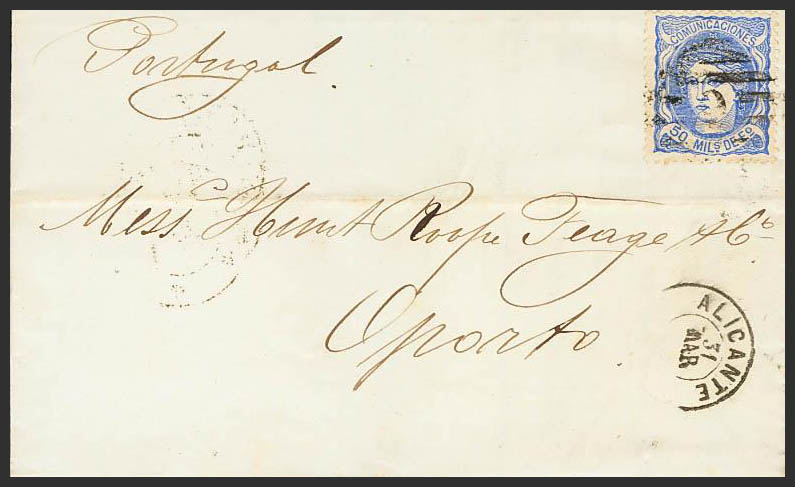 Portugal.
COMUNICACIONES
50. MILS. DE Eo.
Messrs Hunt Roope Teage & Co
Oporto.
ALICANTE
31
MAR